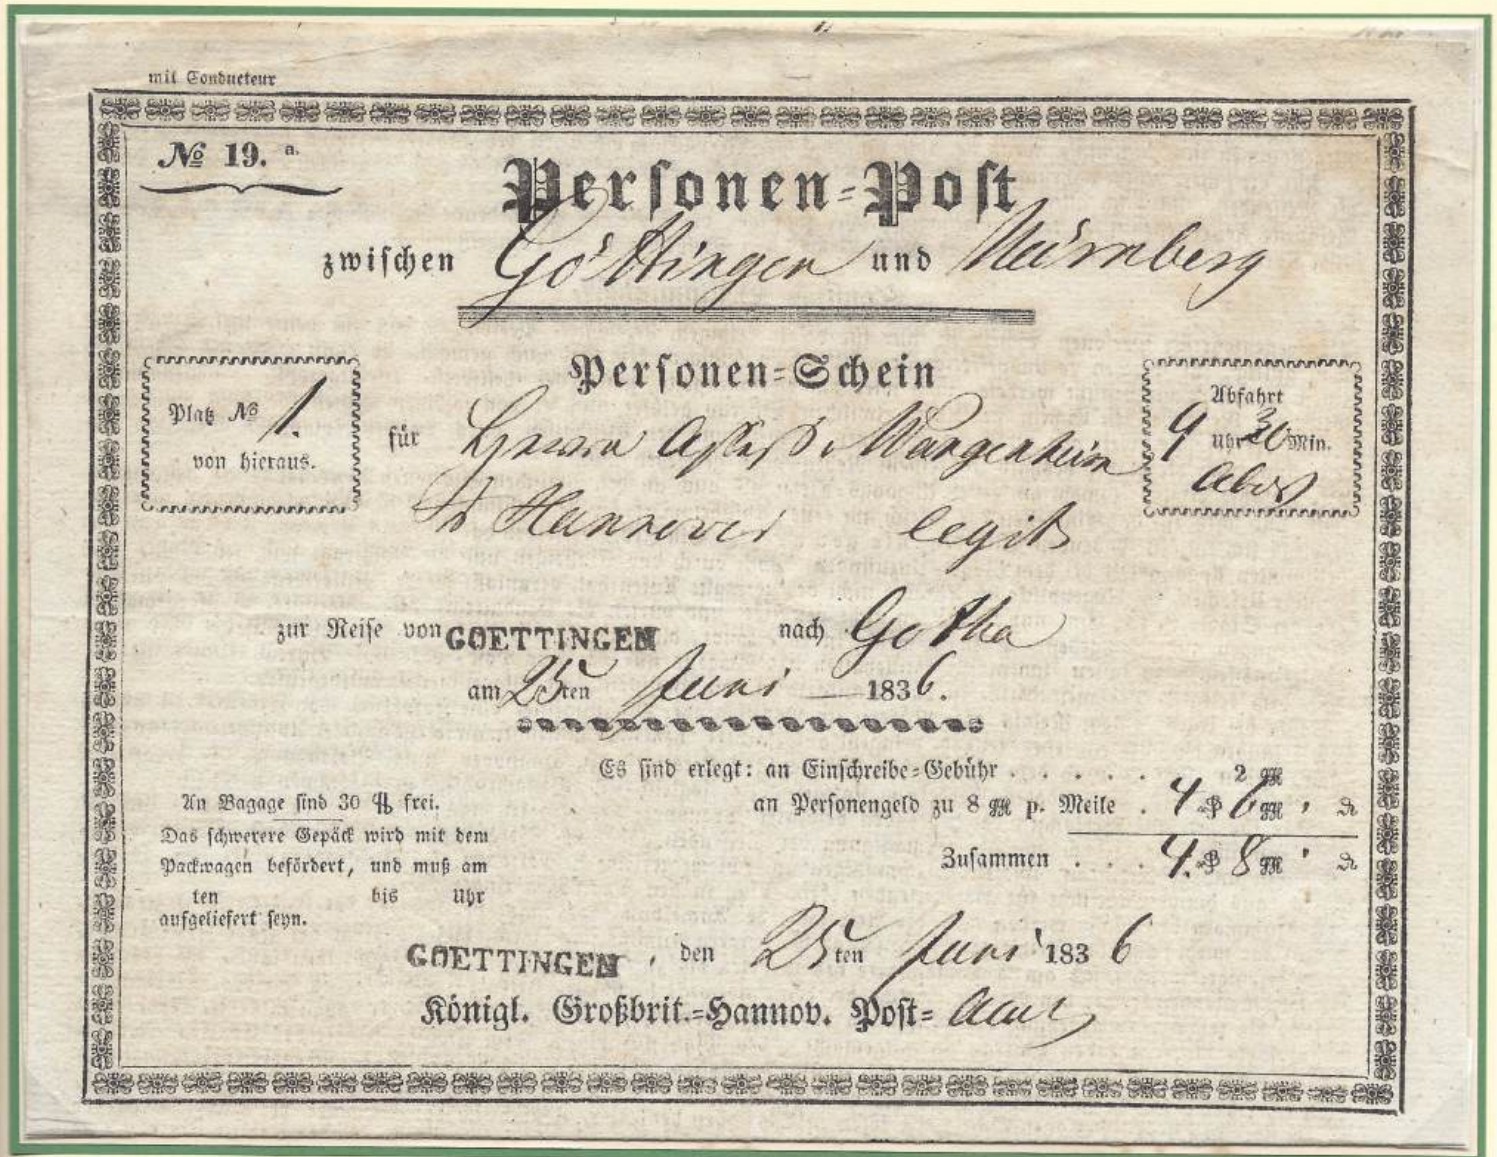 mit Conducteur
№ 19. a.
Personen-Post
zwischen Göttingen und Nürnberg
Personen-Schein
Platz № 1.
von hieraus.
Abfahrt
9 Uhr 30 Min.
Abds
für Herrn Assess. Wangenheim
Hannover legit
zur Reise von GOETTINGEN nach Gotha
am 25ten Juni 1836.
Es sind erlegt: an Einschreibe-Gebühr . . . . . 2 ggr
an Personengeld zu 8 ggr p. Meile . 4 ₰ 6 ggr , ₰
Zusammen . . . 4. ₰ 8 ggr , ₰
An Bagage sind 30 ℔ frei.
Das schwerere Gepäck wird mit dem
Packwagen befördert, und muß am
ten bis Uhr
aufgeliefert seyn.
GOETTINGEN, den 25ten Juni 1836
Königl. Großbrit.-Hannov. Post-Amt